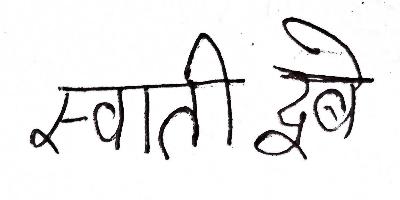 स्वाती दुबे